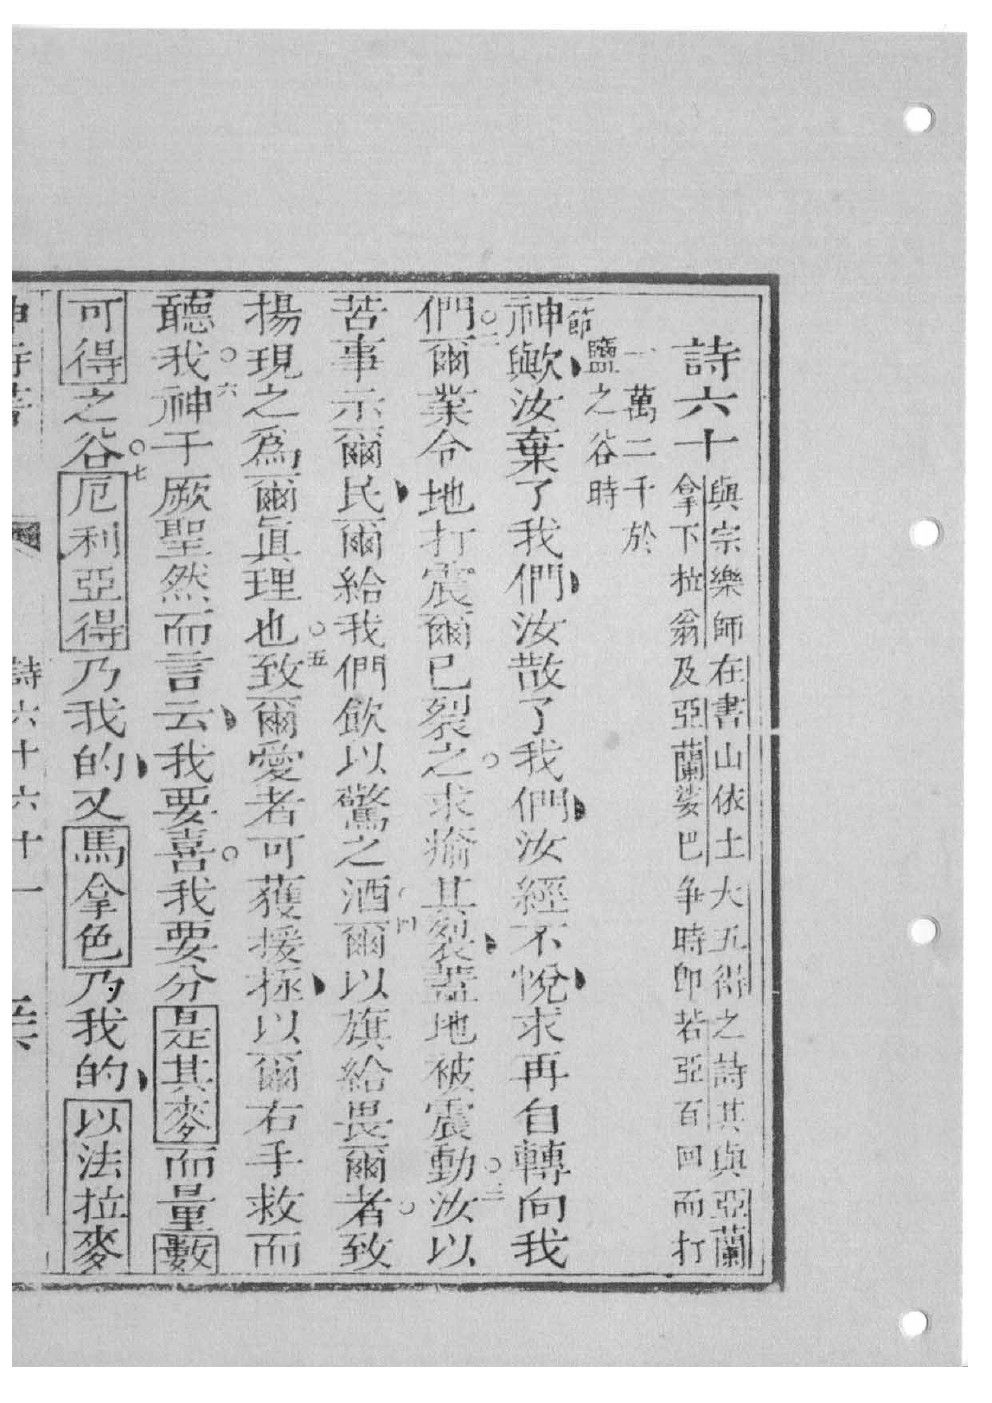 詩六十
與宗樂師在書山依土大五得之詩其與亞蘭
拿下拉翁及亞蘭娑巴爭時即若亞百回而打
一萬二千於
鹽之谷時
一節
神歟汝棄了我們汝散了我們汝經不悅求再自轉向我
們二爾業令地打震爾已裂之求瘉其裂蓋地被震動三汝以
苦事示爾民爾給我們飲以驚之酒四爾以旗給畏爾者致
揚現之爲爾眞理也五致爾愛者可獲援拯以爾右手救而
聽我六神于厥聖然而言云我要喜我要分是其麥而量數
可得之谷七厄利亞得乃我的又馬拿色乃我的以法拉麥
詩六十 六十一